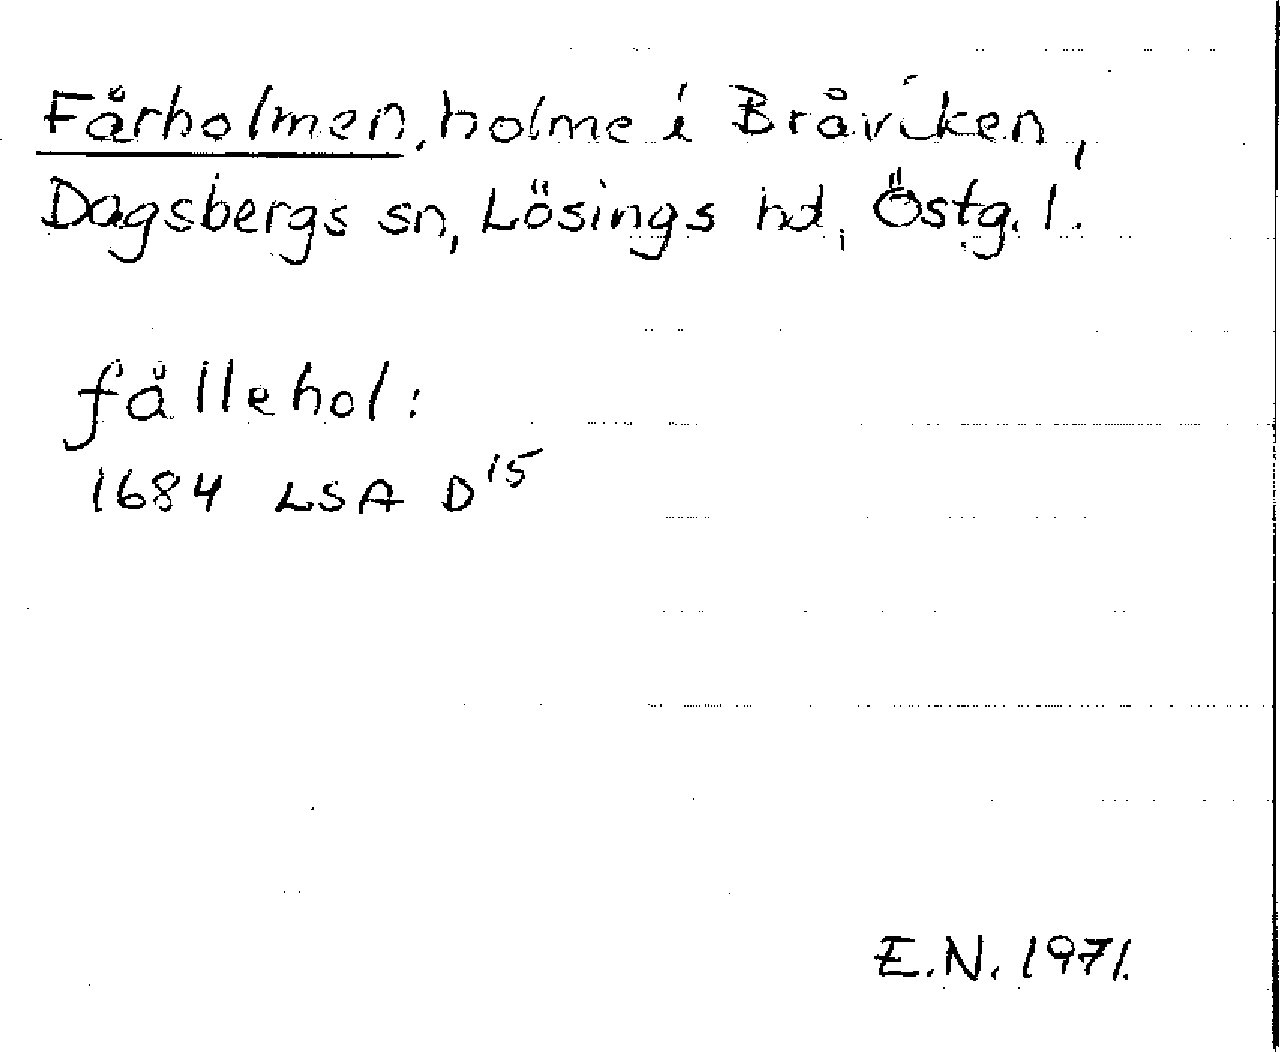 Fårholmen, holme i Bråviken,
Dagsbergs sn, Lösings hd, Östg. l.
fållehol:
1684 LSA D15
E.N. 1971.